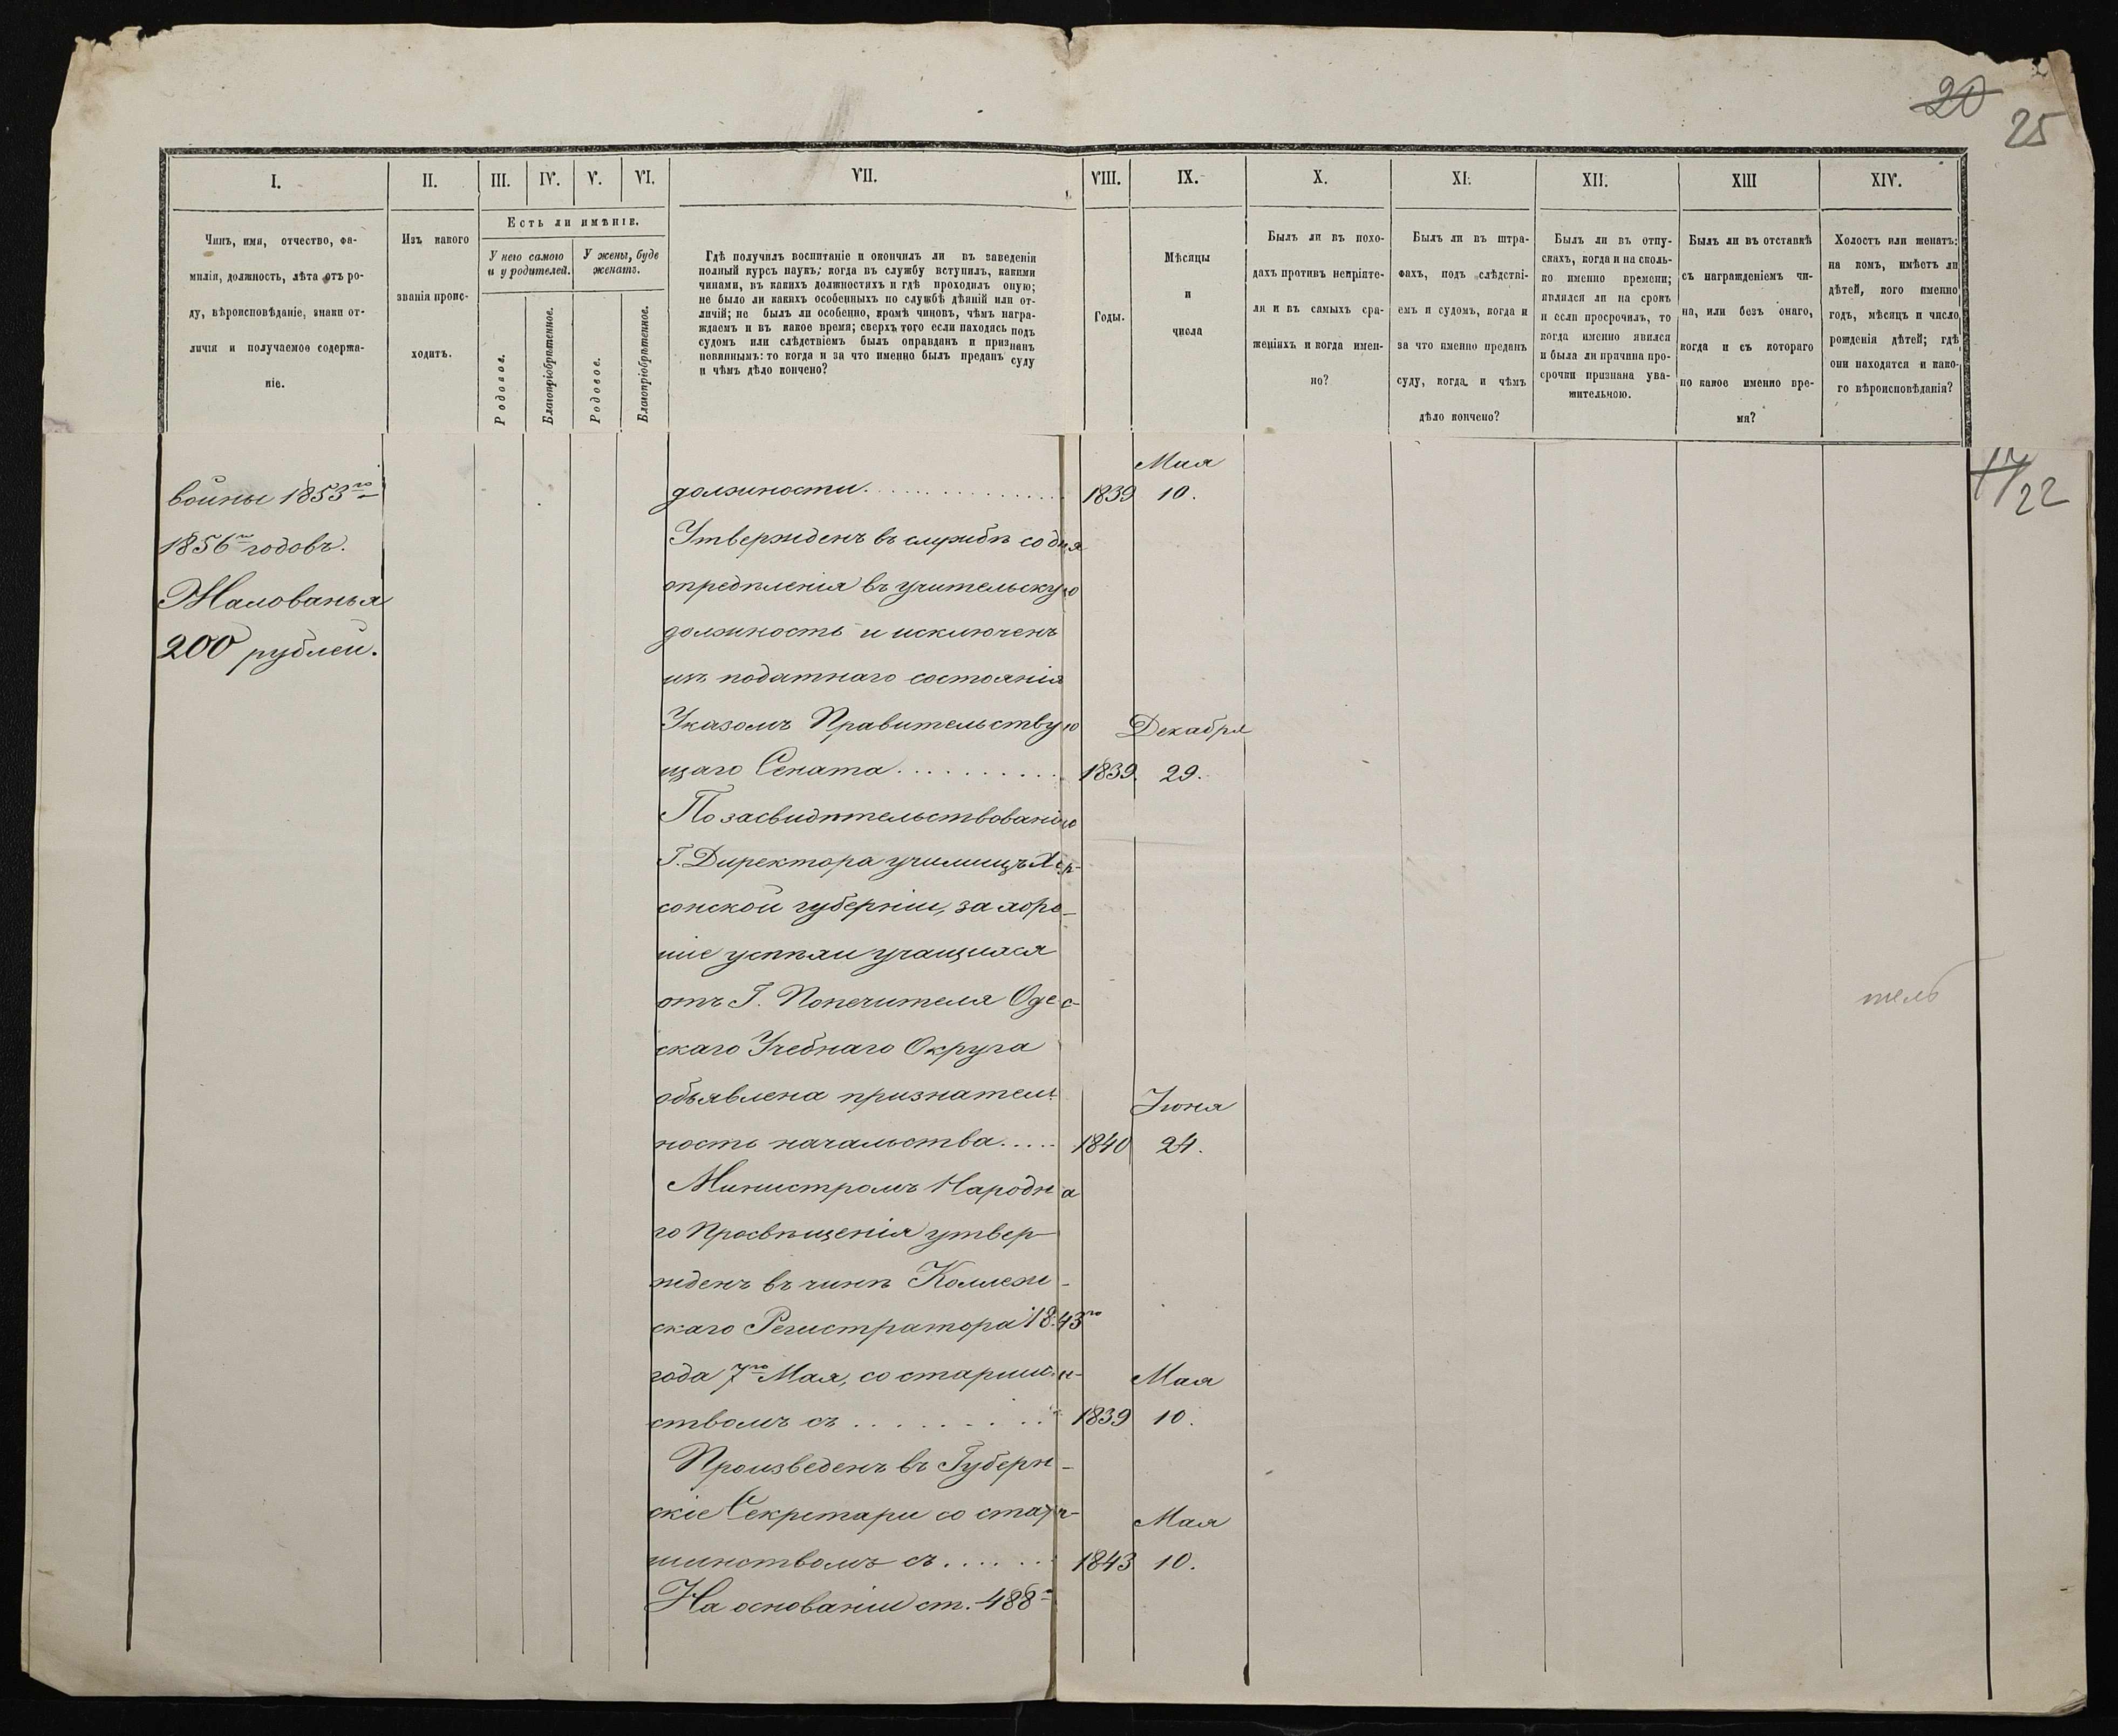 20
25
I.
II.
III.
IV.
V.
VI.
VII.
VIII.
IX.
X.
XI.
XII.
XIII
XIV.
Чинъ, имя, отчество, фа-
милія, должность, лѣта отъ ро-
ду, вѣроисповѣданіе, знаки от-
личія и получаемое содержа-
ніе.
Изъ какого
званія проис-
ходитъ.
Есть ли имѣніе.
У него самого
и у родителей.
У жены, буде
женатъ.
Родовое.
Благопріобрѣтенное.
Родовое.
Благопріобрѣтенное.
Гдѣ получилъ воспитаніе и окончилъ ли въ заведеніи
полный курсъ наукъ; когда въ службу вступилъ, какими
чинами, въ какихъ должностяхъ и гдѣ проходилъ оную;
не было ли какихъ особенныхъ по службѣ дѣяній или от-
личій; не былъ ли особенно, кромѣ чиновъ, чѣмъ награ-
ждаемъ и въ какое время; сверхъ того если находясь подъ
судомъ или слѣдствіемъ былъ оправданъ и признанъ
невиннымъ: то когда и за что именно былъ преданъ суду
и чѣмъ дѣло кончено?
Годы.
Мѣсяцы
и
числа
Былъ ли въ похо-
дахъ противъ непріяте-
ля и въ самыхъ сра-
женіяхъ и когда имен-
но?
Былъ ли въ штра-
фахъ, подъ слѣдстві-
емъ и судомъ, когда и
за что именно преданъ
суду, когда и чѣмъ
дѣло кончено?
Былъ ли въ отпу-
скахъ, когда и на сколь-
ко именно времени;
являлся ли на срокъ
и если просрочилъ, то
когда именно явился
и была ли причина про-
срочки признана ува-
жительною.
Былъ ли въ отставкѣ
съ награжденіемъ чи-
на, или безъ онаго,
когда и съ котораго
по какое именно вре-
мя?
Холостъ или женатъ;
на комъ, имѣетъ ли
дѣтей, кого именно
годъ, мѣсяцъ и число
рожденія дѣтей; гдѣ
они находятся и како-
го вѣроисповѣданія?
22
войны 1853го
1856го годовъ.
Жалованья
200 рублей.
Мая
должности. 1839 10.
Утвержденъ въ службѣ со дня
опредѣленія въ учительскую
должность и исключенъ
изъ податнаго состоянія
Указомъ Правительствую
Декабря
щаго Сената. 1839. 29.
По засвидѣтельствованію
Г. Директора училищъ Хер-
сонской губерніи, за хоро-
шіе успѣхи учащихся
отъ Г. Попечителя Одес-
тель
скаго Учебнаго Округа
объявлена признатель
Іюня
ность начальства. 1840 24.
Министромъ Народна
го Просвѣщенія утвер-
жденъ въ чинѣ Коллеж-
скаго Регистратора 1843го
года 7го Мая, со старшин-
Мая
ствомъ съ 1839 10.
Произведенъ въ Губерн-
скіе Секретари со стар-
Мая
шинствомъ съ. 1843 10.
На основаніи ст. 488й